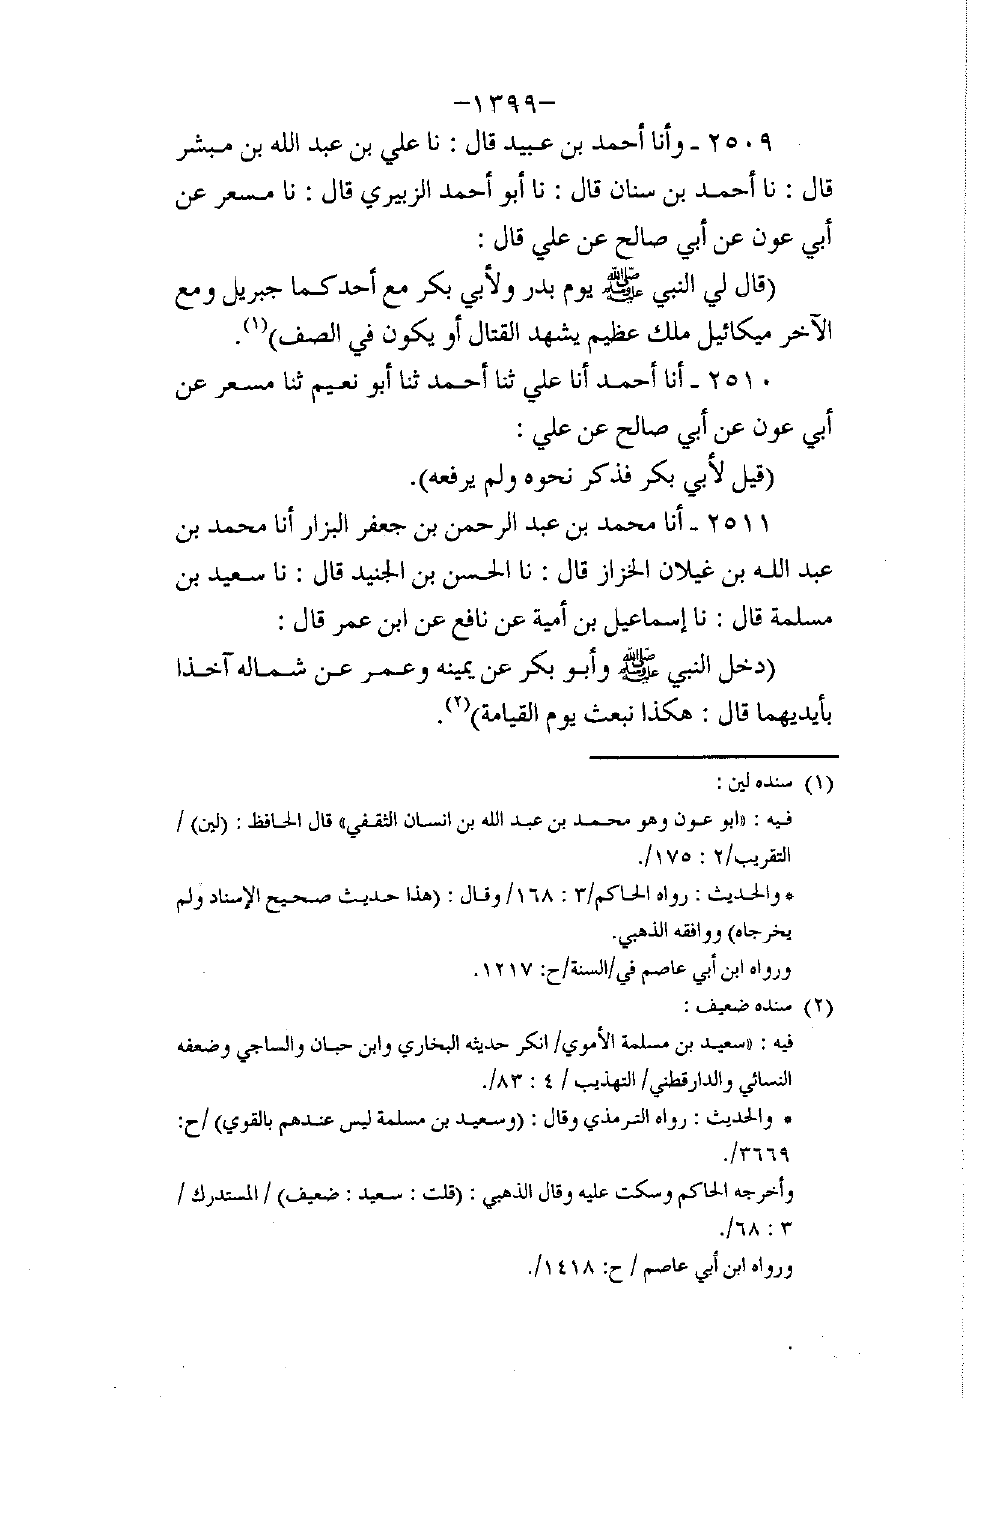 -١٣٩٩-
٢٥٠٩ ـ وأنا أحمد بن عبيد قال : نا علي بن عبد الله بن مبشر
قال : نا أحمد بن سنان قال : نا أبو أحمد الزبيري قال : نا مسعر عن
أبي عون عن أبي صالح عن علي قال :
(قال لي النبي ﷺ يوم بدر ولأبي بكر مع أحدكما جبريل ومع
الآخر ميكائيل ملك عظيم يشهد القتال أو يكون في الصف)(١).
٢٥١٠ ـ أنا أحمد أنا علي ثنا أحمد ثنا أبو نعيم ثنا مسعر عن
أبي عون عن أبي صالح عن علي :
(قيل لأبي بكر فذكر نحوه ولم يرفعه).
٢٥١١ ـ أنا محمد بن عبد الرحمن بن جعفر البزار أنا محمد بن
عبد الله بن غيلان الخزاز قال : نا الحسن بن الجنيد قال : نا سعيد بن
مسلمة قال : نا إسماعيل بن أمية عن نافع عن ابن عمر قال :
(دخل النبي ﷺ وأبو بكر عن يمينه وعمر عن شماله آخذا
بأيديهما قال : هكذا نبعث يوم القيامة)(٢).
(١) سنده لين :
فيه : «ابو عون وهو محمد بن عبد الله بن انسان الثقفي» قال الحافظ : (لين) /
التقريب/٢ : ١٧٥/.
* والحديث : رواه الحاكم/٣ : ١٦٨/ وقال : (هذا حديث صحيح الإسناد ولم
يخرجاه) ووافقه الذهبي.
ورواه ابن أبي عاصم في/السنة/ح: ١٢١٧.
(٢) سنده ضعيف :
فيه : «سعيد بن مسلمة الأموي/ انكر حديثه البخاري وابن حبان والساجي وضعفه
النسائي والدارقطني/ التهذيب / ٤ : ٨٣/.
* والحديث : رواه الترمذي وقال : (وسعيد بن مسلمة ليس عندهم بالقوي) /ح:
٣٦٦٩/.
وأخرجه الحاكم وسكت عليه وقال الذهبي : (قلت : سعيد : ضعيف) / المستدرك /
٣ : ٦٨/.
ورواه ابن أبي عاصم / ح: ١٤١٨/.